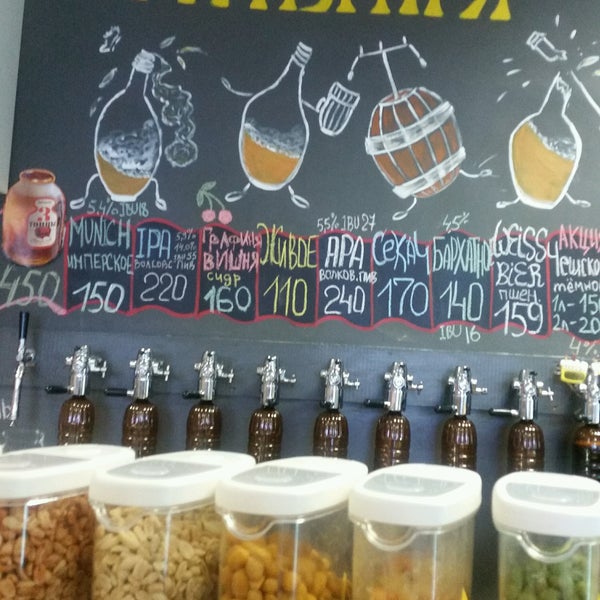 5.4% IBU 18
MUNICH
ИМПЕРСКОЕ
150
IPA
220
ГРАФИНЯ
ВИШНЯ
СИДР
160
ЖИВОЕ
110
5.5% IBU 27
APA
ВОЛКОВ. ПИВ
240
СЕКАЧ
170
4.5%
БАРХАТНОЕ
140
IBU 16
WEISS
BIER
ПШЕН.
159
АКЦИЯ
ЧЕШСКОЕ
ТЁМНОЕ
1Л - 150
2Л - 20
4%
3
450